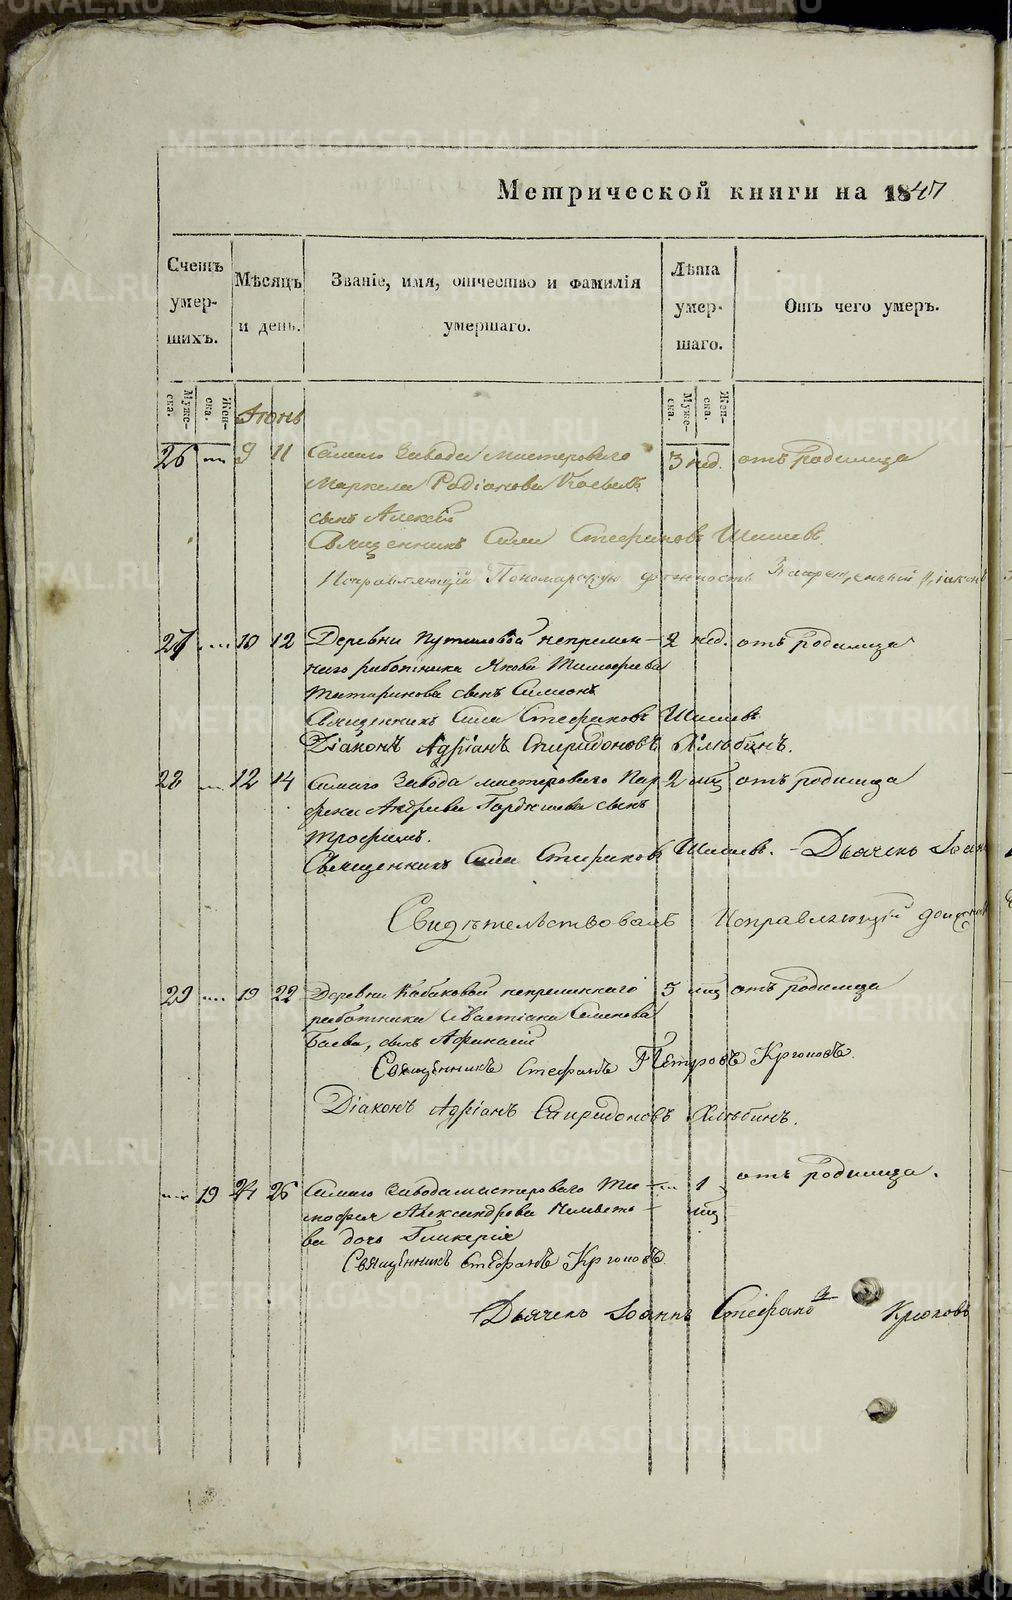 Метрической книги на 1847
Счетъ умер- шихъ.
Мѣсяцъ и день.
Званіе, имя, отчество и фамилія умершаго.
Лѣта умер- шаго.
Отъ чего умеръ.
Муже- ска.
Жен- ска.
Муже- ска.
Жен- ска.
Іюнь
26 9 11 Самаго Завода мастероваго 3 нед. отъ родимца
Маркела Родіонова
сынъ Алексѣй
Священникъ Сила Стефановъ Шишевъ
Исправляющій Пономарскую должность Діаконъ
27 10 12 Деревни Путиловой непремен- 2 нед. отъ родимца
наго работника Якова Тимофеева
Татаринова сынъ Симеонъ
Священникъ Сила Стефановъ Шишевъ
Діаконъ Адріанъ Спиридоновъ Хлѣбинъ.
28 12 14 Самаго Завода мастероваго Пар 2 мц отъ родимца
фена Андреева Гордѣева сынъ
Трофимъ.
Священникъ Сила Стефановъ Шишевъ. - Дьячекъ Іоан
Свидѣтельствовалъ Исправляющій
29 19 22 Деревни Кабаковой непременнаго 5 мц отъ родимца
работника Севастіана Семенова
Баева, сынъ Афанасій
Священникъ Стефанъ Петровъ Крюковъ.
Діаконъ Адріанъ Спиридоновъ Хлѣбинъ.
19 24 26 Самаго Завода мастероваго Ти- 1 отъ родимца.
мофея Александрова мц
ва дочь Гликерія
Священникъ Стефанъ Крюковъ.
Дьячекъ Іоаннъ Стефановъ Крюковъ
METRIKI.GASO-URAL.RU